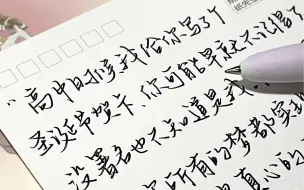 "高中时候我给你写了个
圣诞节贺卡，你可能早就不记得了
没署名也不知道是我
所有的梦都实现
真心的